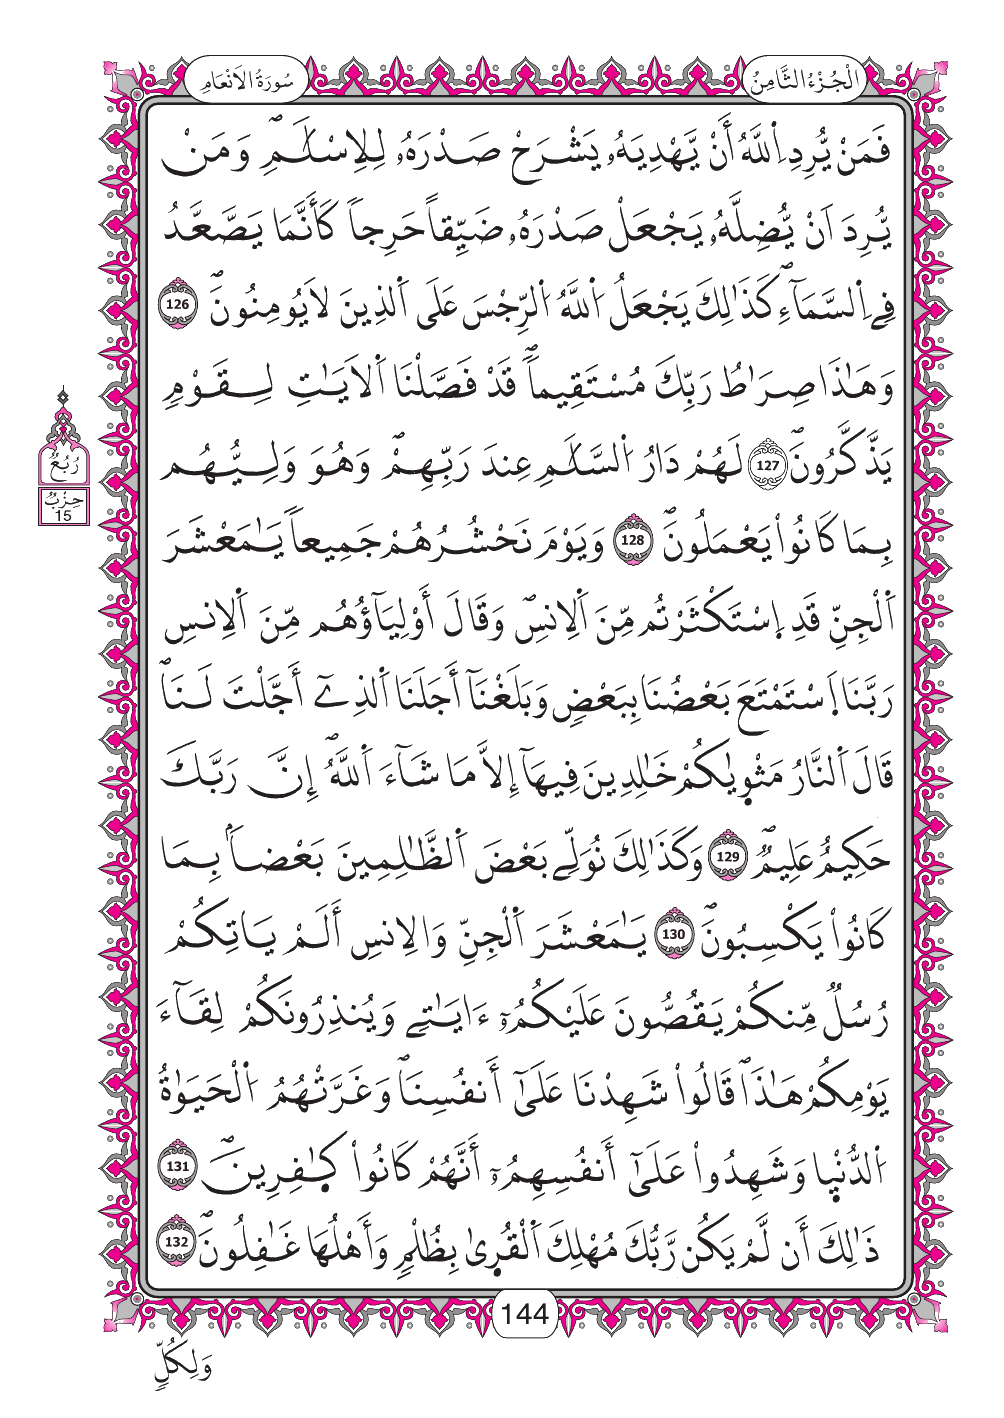 الْجُزْءُ الثَّامِنُ
سُورَةُ الَانْعَامِ
فَمَنْ يُّرِدِ اِ۬للَّهُ أَنْ يَّهْدِيَهُۥ يَشْرَحْ صَدْرَهُۥ لِلِاسْلَٰمِۖ وَمَنْ
يُّرِدَ اَنْ يُّضِلَّهُۥ يَجْعَلْ صَدْرَهُۥ ضَيِّقاً حَرِجاٗ كَأَنَّمَا يَصَّعَّدُ
فِے اِ۬لسَّمَآءِۖ كَذَٰلِكَ يَجْعَلُ اُ۬للَّهُ اُ۬لرِّجْسَ عَلَى اَ۬لذِينَ لَا يُومِنُونَۖ 126
وَهَٰذَا صِرَٰطُ رَبِّكَ مُسْتَقِيماٗۖ قَدْ فَصَّلْنَا اَ۬لَايَٰتِ لِقَوْمٖ
يَذَّكَّرُونَۖ 127 لَهُمْ دَارُ اُ۬لسَّلَٰمِ عِندَ رَبِّهِمْۖ وَهُوَ وَلِيُّهُم
بِمَا كَانُواْ يَعْمَلُونَۖ 128 وَيَوْمَ نَحْشُرُهُمْ جَمِيعاٗ يَٰمَعْشَرَ
اَ۬لْجِنِّ قَدِ اِ۪سْتَكْثَرْتُم مِّنَ اَ۬لِانسِۖ وَقَالَ أَوْلِيَآؤُهُم مِّنَ اَ۬لِانسِ
رَبَّنَا اَ۪سْتَمْتَعَ بَعْضُنَا بِبَعْضٖ وَبَلَغْنَآ أَجَلَنَا اَ۬لذِےٓ أَجَّلْتَ لَنَاۖ
قَالَ اَ۬لنَّارُ مَثْو۪يٰكُمْ خَٰلِدِينَ فِيهَآ إِلَّا مَا شَآءَ اَ۬للَّهُۖ إِنَّ رَبَّكَ
حَكِيمٌ عَلِيمٞۖ 129 وَكَذَٰلِكَ نُوَلِّے بَعْضَ اَ۬لظَّٰلِمِينَ بَعْضاَۢ بِمَا
كَانُواْ يَكْسِبُونَۖ 130 يَٰمَعْشَرَ اَ۬لْجِنِّ وَالِانسِ أَلَمْ يَاتِكُمْ
رُسُلٞ مِّنكُمْ يَقُصُّونَ عَلَيْكُمُۥٓ ءَايَٰتِے وَيُنذِرُونَكُمْ لِقَآءَ
يَوْمِكُمْ هَٰذَاۖ قَالُواْ شَهِدْنَا عَلَىٰٓ أَنفُسِنَاۖ وَغَرَّتْهُمُ اُ۬لْحَيَوٰةُ
اُ۬لدُّنْي۪ا وَشَهِدُواْ عَلَىٰٓ أَنفُسِهِمُۥٓ أَنَّهُمْ كَانُواْ كٰ۪فِرِينَۖ 131
ذَٰلِكَ أَن لَّمْ يَكُن رَّبُّكَ مُهْلِكَ اَ۬لْقُر۪ىٰ بِظُلْمٖ وَأَهْلُهَا غَٰفِلُونَۖ 132
رُبُعُ
حِزْبٌ
15
144
وَلِكُلّٖ